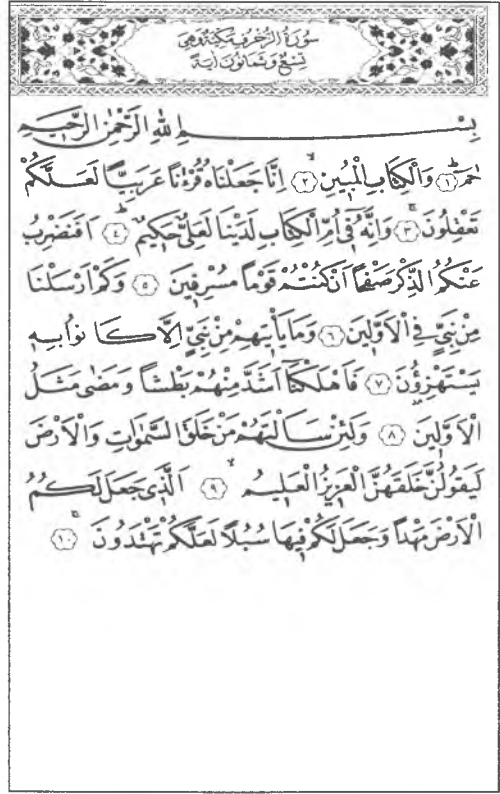 سُورَةُ الزُّخْرُفِ مَكِّيَّةٌ وَهِيَ
تِسْعٌ وَثَمَانُونَ اٰيَةً
بِسْـــــــــمِ اللّٰهِ الرَّحْمٰنِ الرَّحِيمِ
حٰمٓ ﴿١﴾ وَالْكِتَابِ الْمُبِينِ ﴿٢﴾ اِنَّا جَعَلْنَاهُ قُرْءٰنًا عَرَبِيًّا لَعَلَّكُمْ
تَعْقِلُونَ ﴿٣﴾ وَاِنَّهُ فِٓى اُمِّ الْكِتَابِ لَدَيْنَا لَعَلِىٌّ حَكِيمٌ ﴿٤﴾ اَفَنَضْرِبُ
عَنْكُمُ الذِّكْرَ صَفْحًا اَنْ كُنْتُمْ قَوْمًا مُسْرِفِينَ ﴿٥﴾ وَكَمْ اَرْسَلْنَا
مِنْ نَبِىٍّ فِى الْاَوَّلِينَ ﴿٦﴾ وَمَا يَأْتِيهِمْ مِنْ نَبِىٍّ اِلَّا كَانُوا بِهِ
يَسْتَهْزِؤُنَ ﴿٧﴾ فَاَهْلَكْنَٓا اَشَدَّ مِنْهُمْ بَطْشًا وَمَضٰى مَثَلُ
الْاَوَّلِينَ ﴿٨﴾ وَلَئِنْ سَاَلْتَهُمْ مَنْ خَلَقَ السَّمٰوَاتِ وَالْاَرْضَ
لَيَقُولُنَّ خَلَقَهُنَّ الْعَزِيزُ الْعَلِيمُ ﴿٩﴾ اَلَّذِى جَعَلَ لَكُمُ
الْاَرْضَ مَهْدًا وَجَعَلَ لَكُمْ فِيهَا سُبُلًا لَعَلَّكُمْ تَهْتَدُونَ ﴿١٠﴾